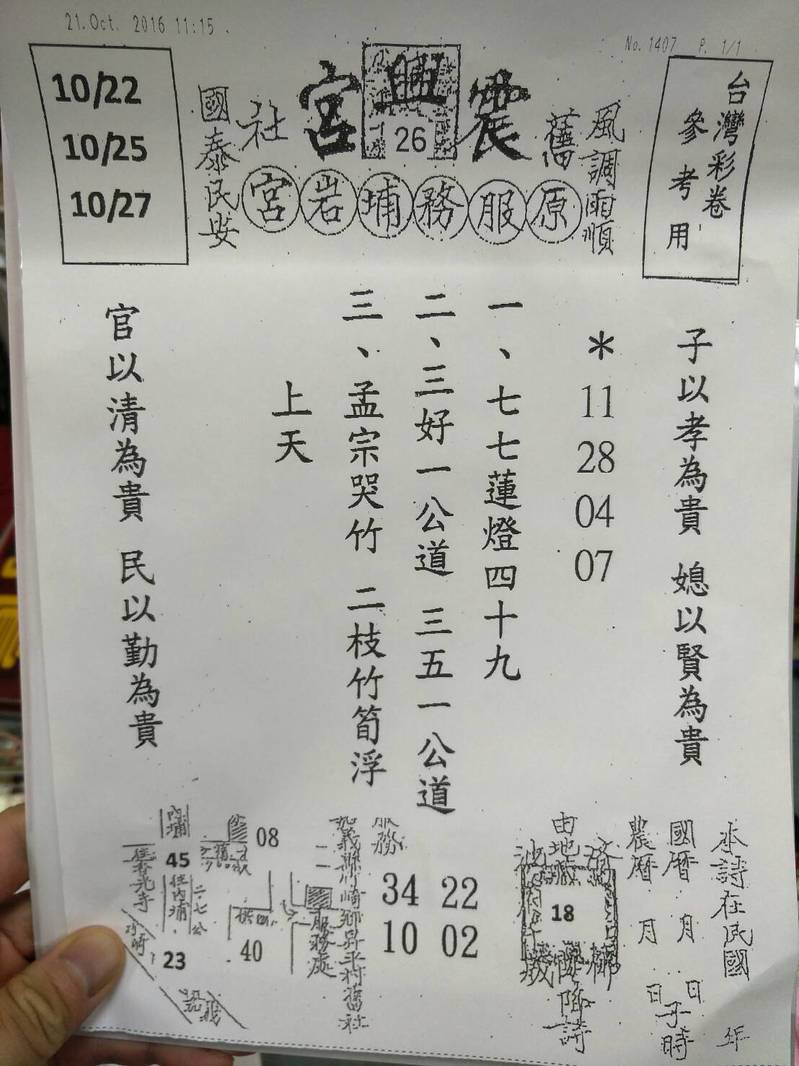 21.Oct. 2016 11:15
No.1407 P. 1/1
台灣彩卷
參考用
風調雨順
舊
震興宮
26
社
國泰民安
原服務埔岩宮
10/22
10/25
10/27
子以孝為貴 媳以賢為貴
＊11 28 04 07
一、七七蓮燈四十九
二、三好一公道 三五一公道
三、孟宗哭竹 二枝竹筍浮
上天
官以清為貴 民以勤為貴
本詩在民國 年
國曆 月 日子時
農曆 月 日
18
降詩
服務
34 22
10 02
嘉義縣竹崎鄉昇平村舊社
服務處
08
40
內埔
45
往香光寺
往內埔
23